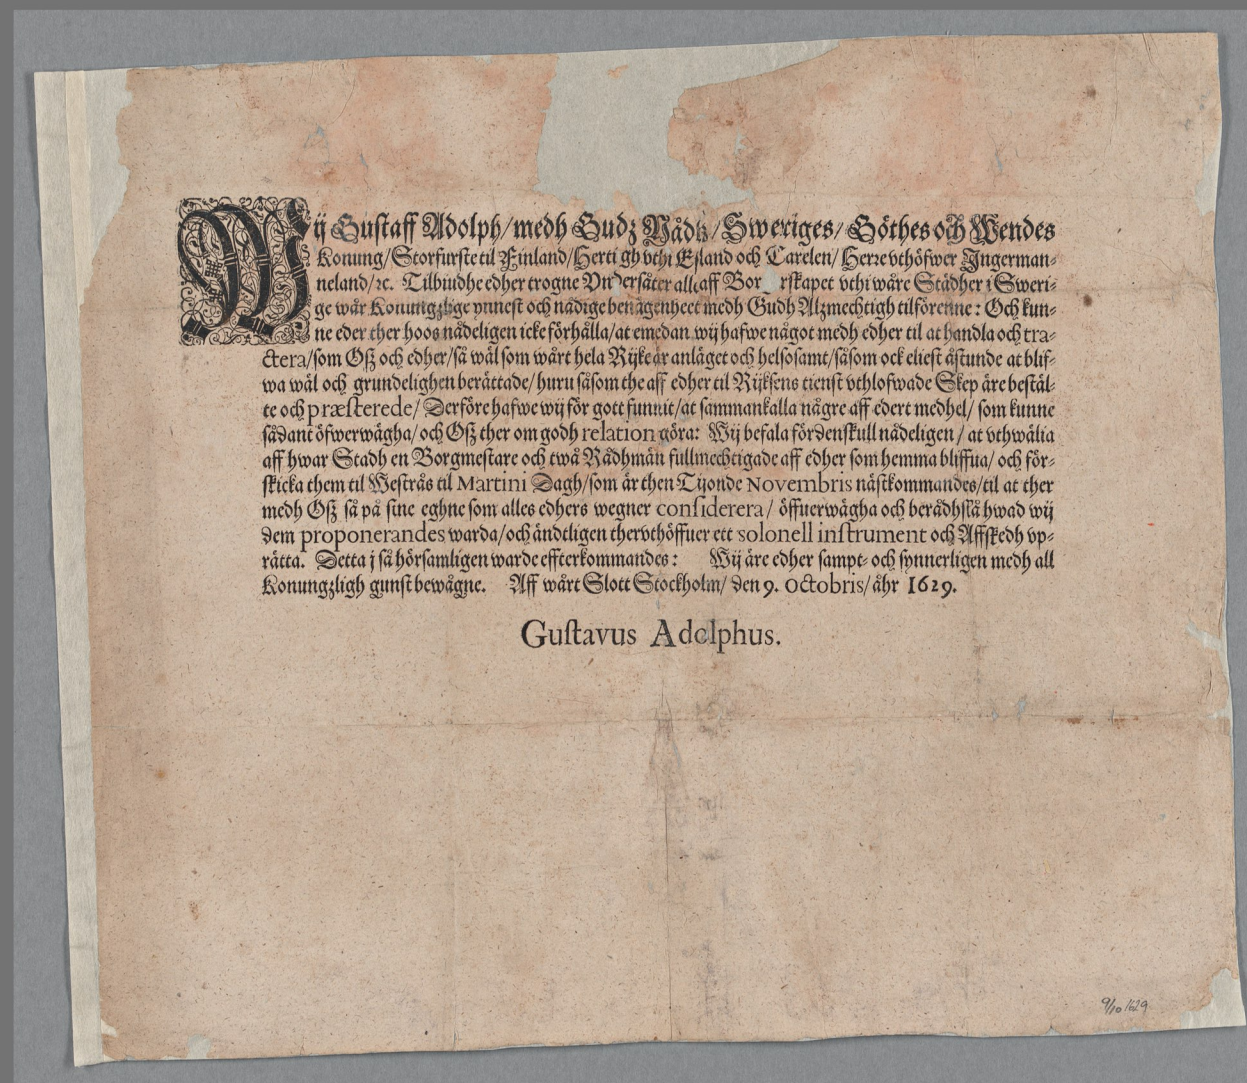 Wij Gustaff Adolph/medh Gudz Nådh/Sweriges/Göthes och Wendes
Konung/Storfurste til Finland/Herti gh vthi Esland och Carelen/Herre vthöfwer Ingerman-
neland/ꝛc. Tilbiudhe edher trogne Vndersåter alle aff Bor rskapet vthi wåre Städher i Sweri-
ge wår Konungzlige ynnest och nådige benägenheet medh Gudh Alzmechtigh tilförenne: Och kun-
ne eder ther hoos nådeligen icke förhålla/at emedan wij hafwe något medh edher til at handla och tra-
ctera/som Oß och edher/så wäl som wårt hela Rijke är anläget och helsosamt/såsom ock eliest åstunde at blif-
wa wäl och grundelighen berättade/huru såsom the aff edher til Rijksens tienst vthlofwade Skep äre bestäl-
te och præsterede/Derföre hafwe wij för gott funnit/at sammankalla någre aff edert medhel/som kunne
sådant öfwerwägha/och Oß ther om godh relation göra: Wij befala fördenskull nådeligen/at vthwälia
aff hwar Stadh en Borgmestare och twå Rådhmän fullmechtigade aff edher som hemma bliffua/och för-
skicka them til Westrås til Martini Dagh/som är then Tijonde Novembris nästkommandes/til at ther
medh Oß så på sine eghne som alles edhers wegner considerera/öffuerwägha och berådhslå hwad wij
dem proponerandes warda/och ändtligen thervthöffuer ett solonell instrument och Affskedh vp-
rätta. Detta j så hörsamligen warde effterkommandes: Wij äre edher sampt- och synnerligen medh all
Konungzligh gunst bewågne. Aff wårt Slott Stockholm/den 9. Octobris/åhr 1629.
Gustavus Adolphus.
9/10 1629